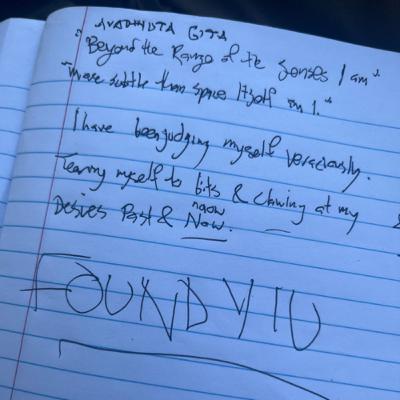 AVADHUTA GITA
"Beyond the Range of the Senses I am"
"more subtle than space Itself am I."
I have been judging myself veraciously.
Tearing myself to bits & clawing at my
Desires Past & Now.
FOUND YIU